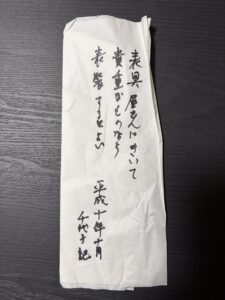 表具屋さんにきいて
貴重なものなら
表装するとよい
平成十年十月
千代子記